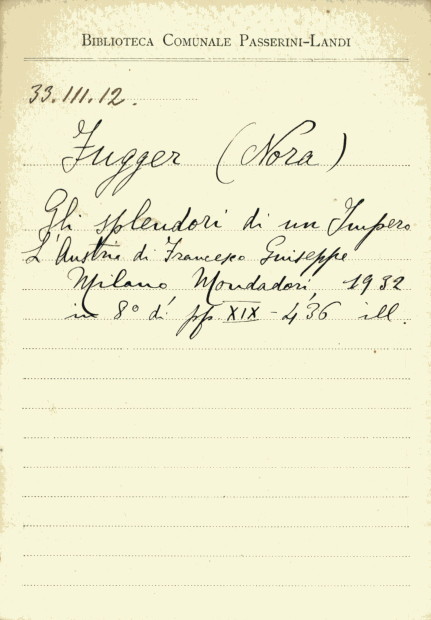 BIBLIOTECA COMUNALE PASSERINI-LANDI
33.III.12.
Fugger (Nora)
Gli splendori di un Impero
L'Austria di Francesco Giuseppe
Milano Mondadori, 1932
in 8° di pp XIX - 436 ill.